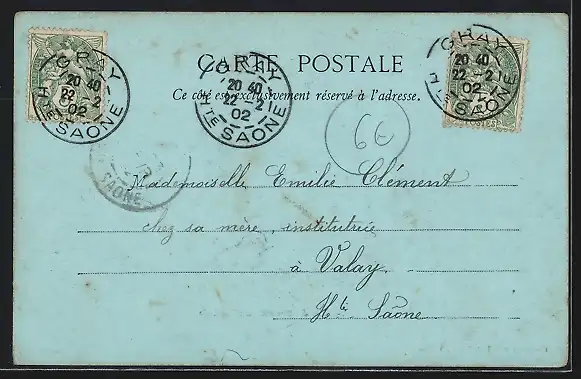 CARTE POSTALE
Ce côté est exclusivement réservé à l'adresse.
GRAY
20 40
22 - 2
02
HTE SAONE
GRAY
20 40
22 - 2
02
HTE SAONE
GRAY
20 40
22 - 2
02
HTE SAONE
6€
SAONE
Mademoiselle Emilie Clément
chez sa mère, institutrice
à Valay
Hte Saône